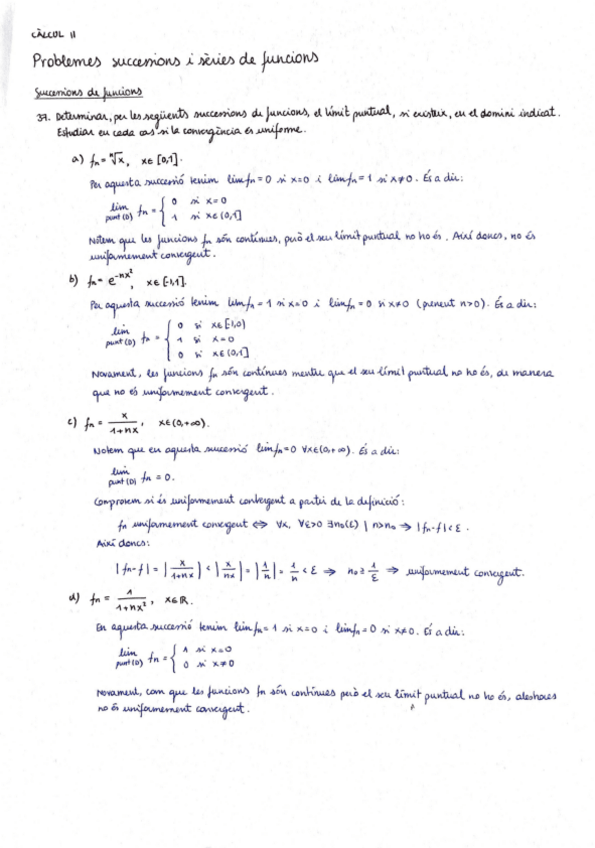 CÀLCUL II
Problemes successions i sèries de funcions
Successions de funcions
37. Determinar, per les següents successions de funcions, el límit puntual, si existeix, en el domini indicat.
Estudiar en cada cas si la convergència és uniforme.
a) fn = ⁿ√x, x∈[0,1].
Per aquesta successió tenim lim fn = 0 si x=0 i lim fn = 1 si x≠0. És a dir:
lim punt(D) fn = { 0 si x=0
1 si x∈(0,1]
Notem que les funcions fn són contínues, però el seu límit puntual no ho és. Així doncs, no és
uniformement convergent.
b) fn = e^(-nx²), x∈[-1,1].
Per aquesta successió tenim lim fn = 1 si x=0 i lim fn = 0 si x≠0 (prenent n>0). És a dir:
lim punt(D) fn = { 0 si x∈[-1,0)
1 si x=0
0 si x∈(0,1]
Novament, les funcions fn són contínues mentre que el seu límit puntual no ho és, de manera
que no és uniformement convergent.
c) fn = x/(1+nx), x∈(0,+∞).
Notem que en aquesta successió lim fn = 0 ∀x∈(0,+∞). És a dir:
lim punt(D) fn = 0.
Comprovem si és uniformement convergent a partir de la definició:
fn uniformement convergent ⇔ ∀x, ∀ε>0 ∃n₀(ε) | n>n₀ → |fn-f|<ε.
Així doncs:
|fn-f| = |x/(1+nx)| < |x/nx| = |1/n| = 1/n < ε ⇒ n₀ ≥ 1/ε ⇒ uniformement convergent.
d) fn = 1/(1+nx²), x∈ℝ.
En aquesta successió tenim lim fn = 1 si x=0 i lim fn = 0 si x≠0. És a dir:
lim punt(D) fn = { 1 si x=0
0 si x≠0
Novament, com que les funcions fn són contínues però el seu límit puntual no ho és, aleshores
no és uniformement convergent.